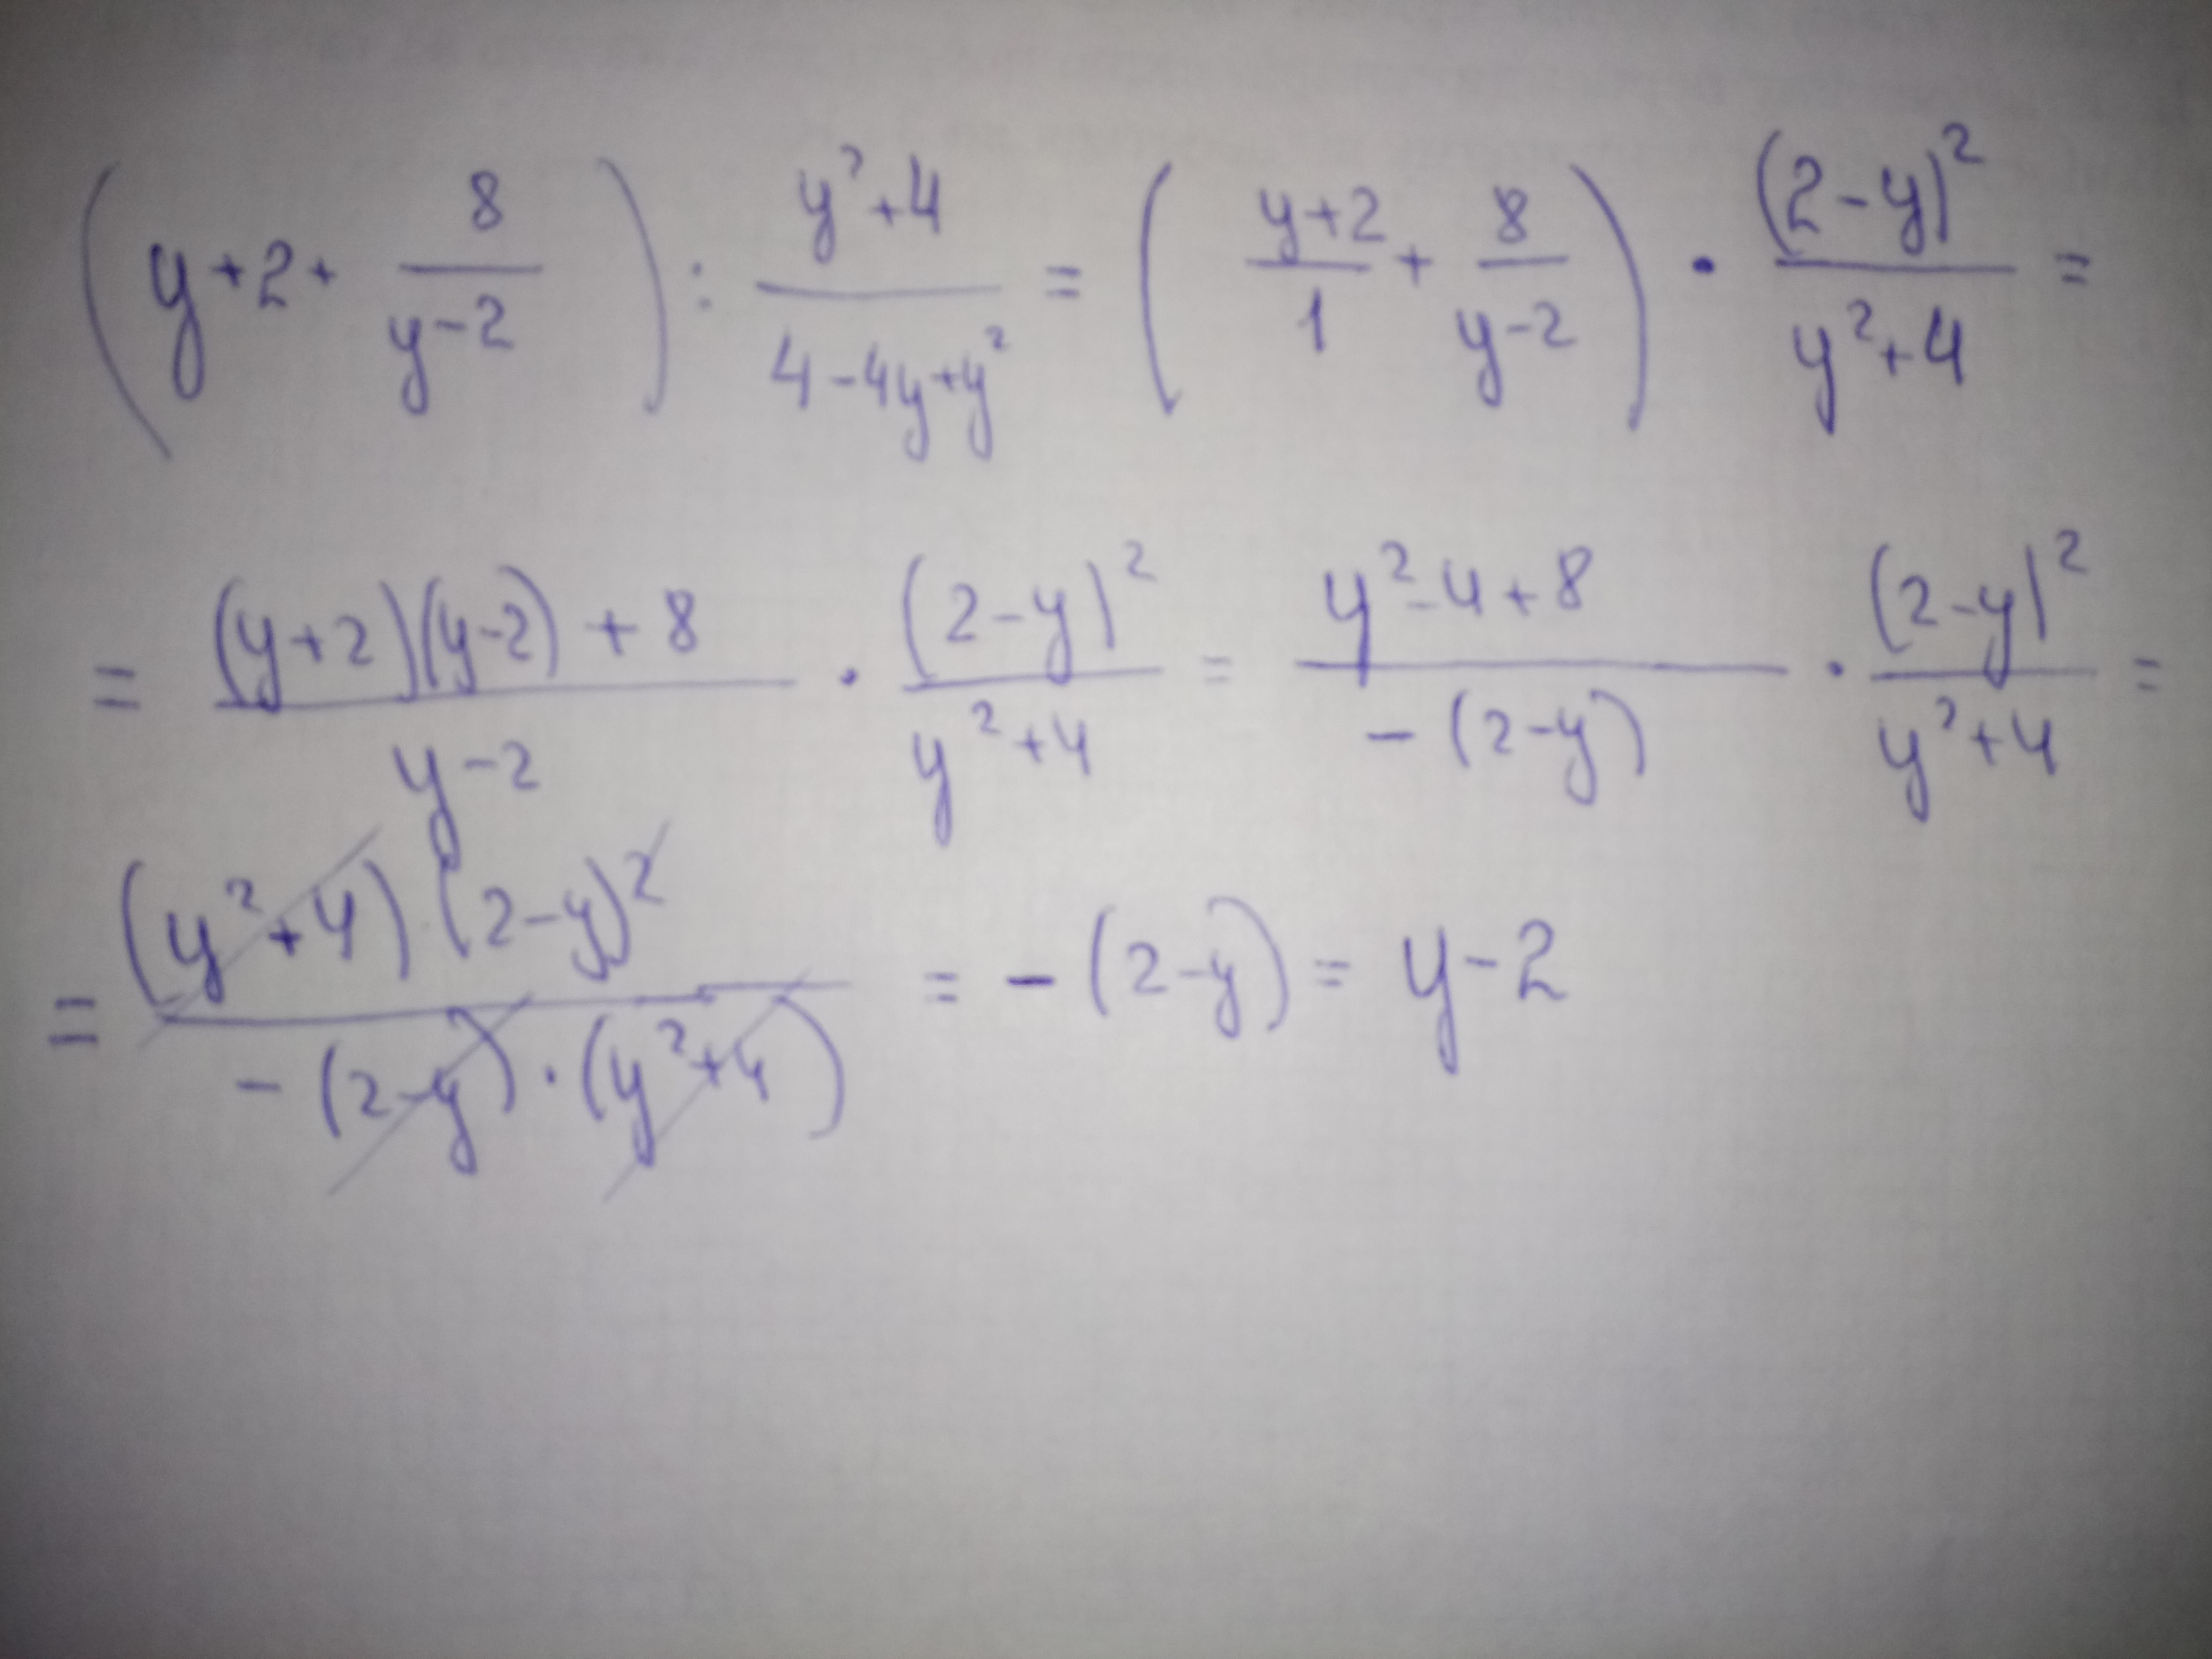 (y+2+ 8/(y-2)) : (y²+4)/(4-4y+y²) = ((y+2)/1 + 8/(y-2)) · (2-y)²/(y²+4) =
= ((y+2)(y-2) + 8)/(y-2) · (2-y)²/(y²+4) = (y²-4+8)/(-(2-y)) · (2-y)²/(y²+4) =
= (y²+4)·(2-y)²/(-(2-y)·(y²+4)) = -(2-y) = y-2